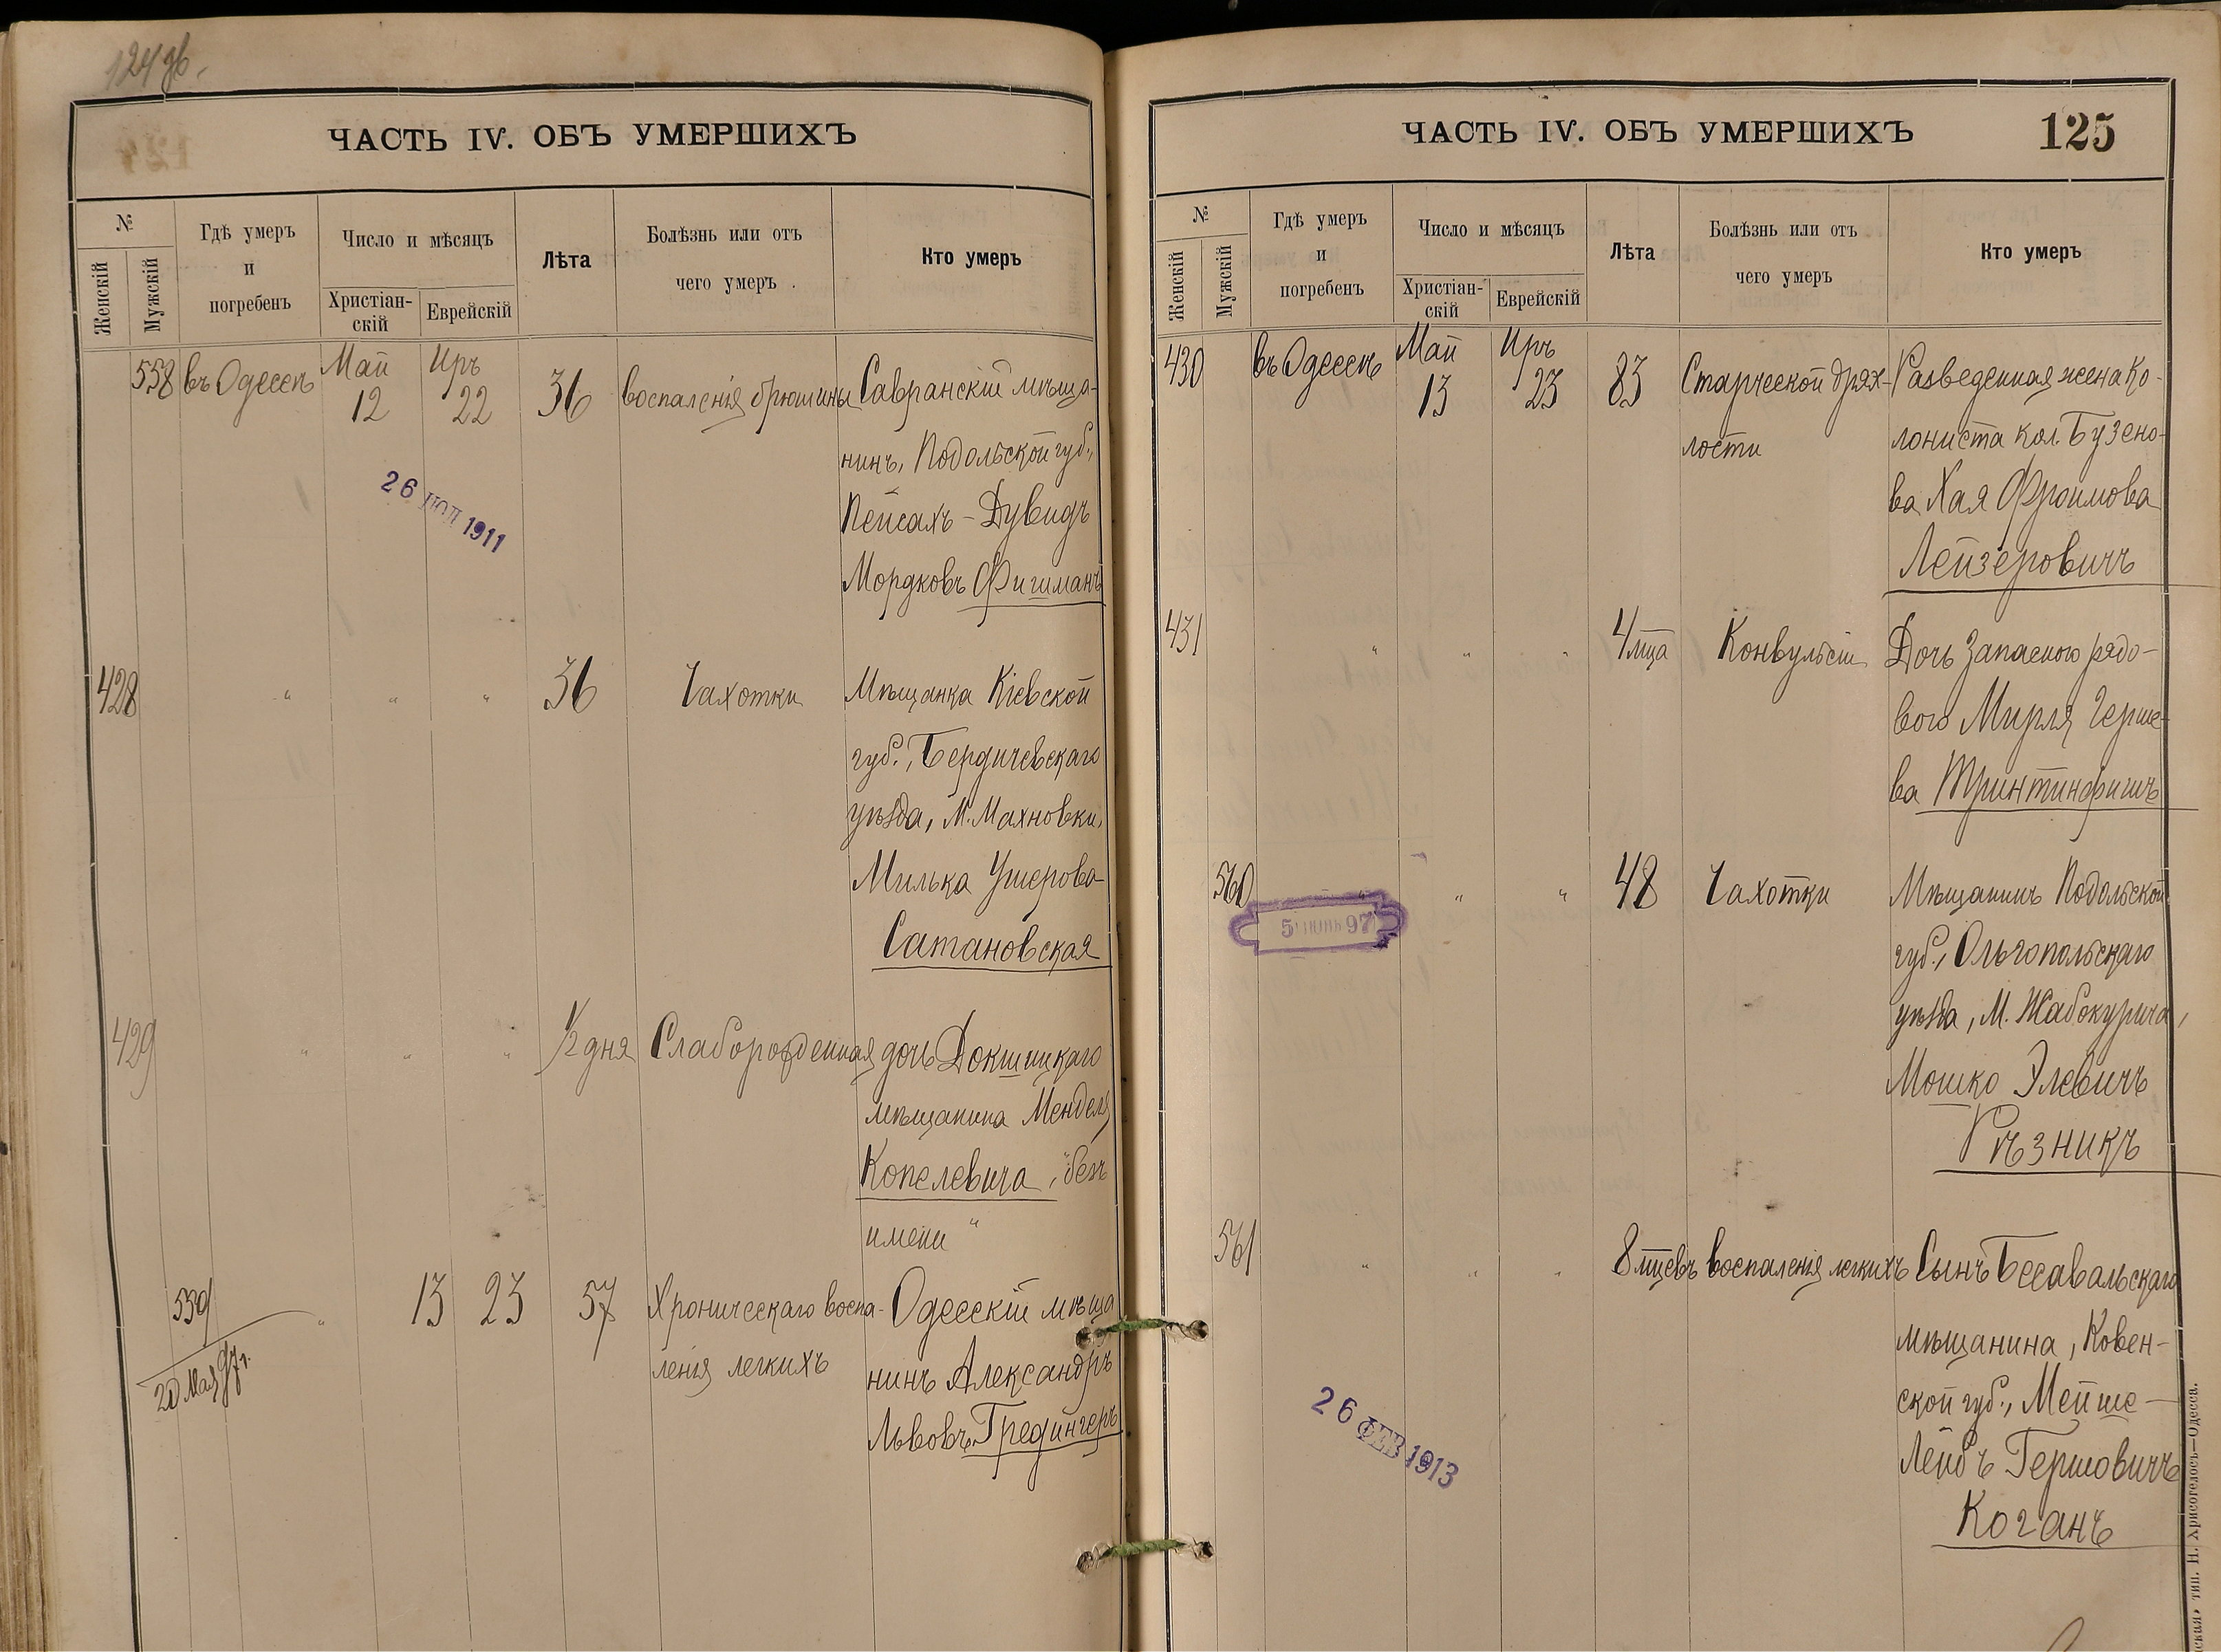 124 об.
ЧАСТЬ IV. ОБЪ УМЕРШИХЪ
№
Женскій
Мужскій
Гдѣ умеръ
и
погребенъ
Число и мѣсяцъ
Христіан-
скій
Еврейскій
Лѣта
Болѣзнь или отъ
чего умеръ
Кто умеръ
558 въ Одессѣ Май 12 Иръ 22 36 воспаленія брюшины Савранскій мѣща-
нинъ, Подольской губ.,
Пейсахъ-Дувидъ
Мордковъ Фишманъ
26 1911
428 " " " 36 Чахотки Мѣщанка Кіевской
губ., Бердичевскаго
уѣзда, М. Махновки,
Милька Ушерова
Сатановская
429 " " " 1/2 дня Слаборожденная дочь Докшицкаго
мѣщанина Менделя
Копелевича, "безъ
имени"
559 " 13 23 57 Хроническаго воспа- Одесскій мѣща
ленія легкихъ нинъ Александръ
Львовъ Гредингеръ
20 Мая 97 г.
ЧАСТЬ IV. ОБЪ УМЕРШИХЪ
125
№
Женскій
Мужскій
Гдѣ умеръ
и
погребенъ
Число и мѣсяцъ
Христіан-
скій
Еврейскій
Лѣта
Болѣзнь или отъ
чего умеръ
Кто умеръ
430 въ Одессѣ Май 13 Иръ 23 83 Старческой дрях- Разведенная жена ко-
лости лониста кол. Бузено-
ва Хая Фроимова
Лейзеровичъ
431 " " " 4 мца Конвульсіи Дочь запасного рядо-
вого Мирля Герше-
ва Тринтинфишъ
560 " " " 48 Чахотки Мѣщанинъ Подольской
губ., Ольгопольскаго
уѣзда, М. Жабокурича,
Мошко Элевичъ
Рѣзникъ
5 ІЮНЬ 97
561 " " " 8 мцевъ воспаленія легкихъ Сынъ Бесавальскаго
мѣщанина, Ковен-
ской губ., Мейше-
Лейбъ Гершовичъ
Коганъ
26 ФЕВ 1913
тип. Н. Хрисогелосъ—Одесса.